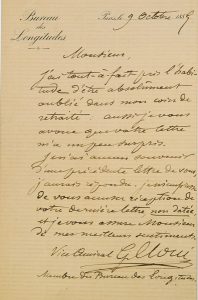 Bureau
des
Longitudes
Paris le 9 Octobre 188
Monsieur,
J'ai tout-à-fait pris l'habi-
tude d'être absolument
oublié dans mon coin de
retraité aussi je vous
avoue que votre lettre
m'a un peu surpris.
Je n'ai aucun souvenir
d'une précédente lettre de vous
j'aurais répondu.
de vous accuser réception de
votre dernière lettre non datée
et je vous assure Monsieur
de mes meilleurs sentiments.
Vice Amiral
Membre du Bureau des Longitudes